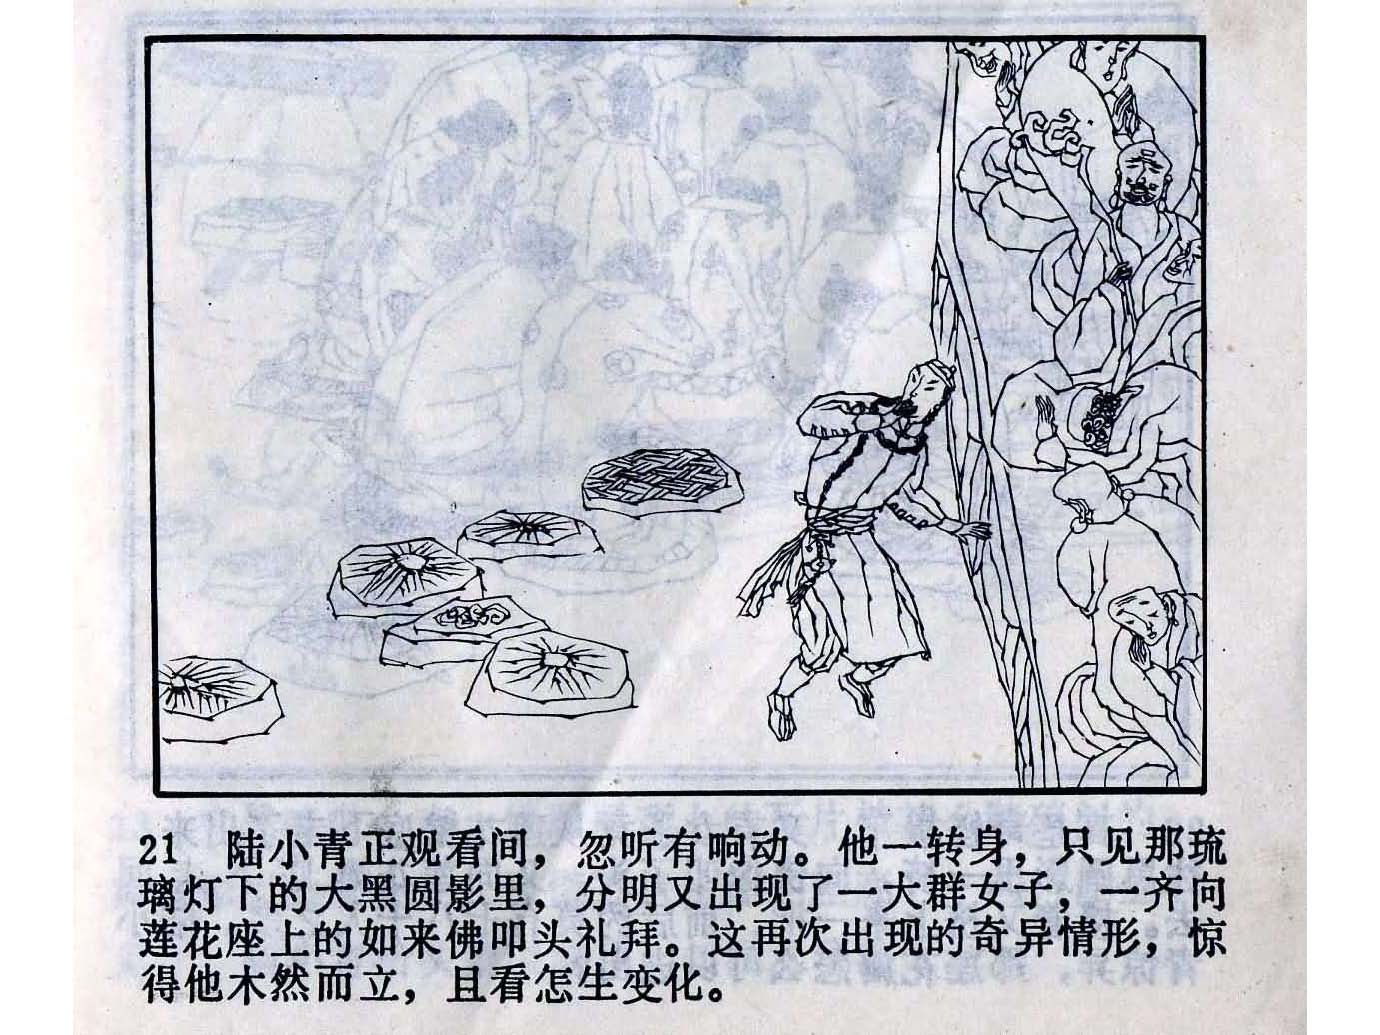 21 陆小青正观看间，忽听有响动。他一转身，只见那琉
璃灯下的大黑圆影里，分明又出现了一大群女子，一齐向
莲花座上的如来佛叩头礼拜。这再次出现的奇异情形，惊
得他木然而立，且看怎生变化。